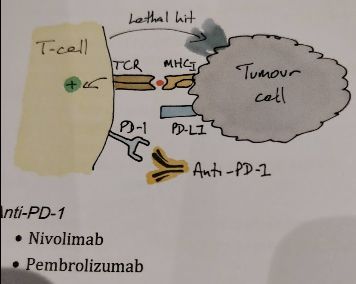 Lethal hit
T-cell
TCR
MHCI
+
Tumour
cell
PD-1
PD-L1
Anti-PD-1
Anti-PD-1
• Nivolimab
• Pembrolizumab